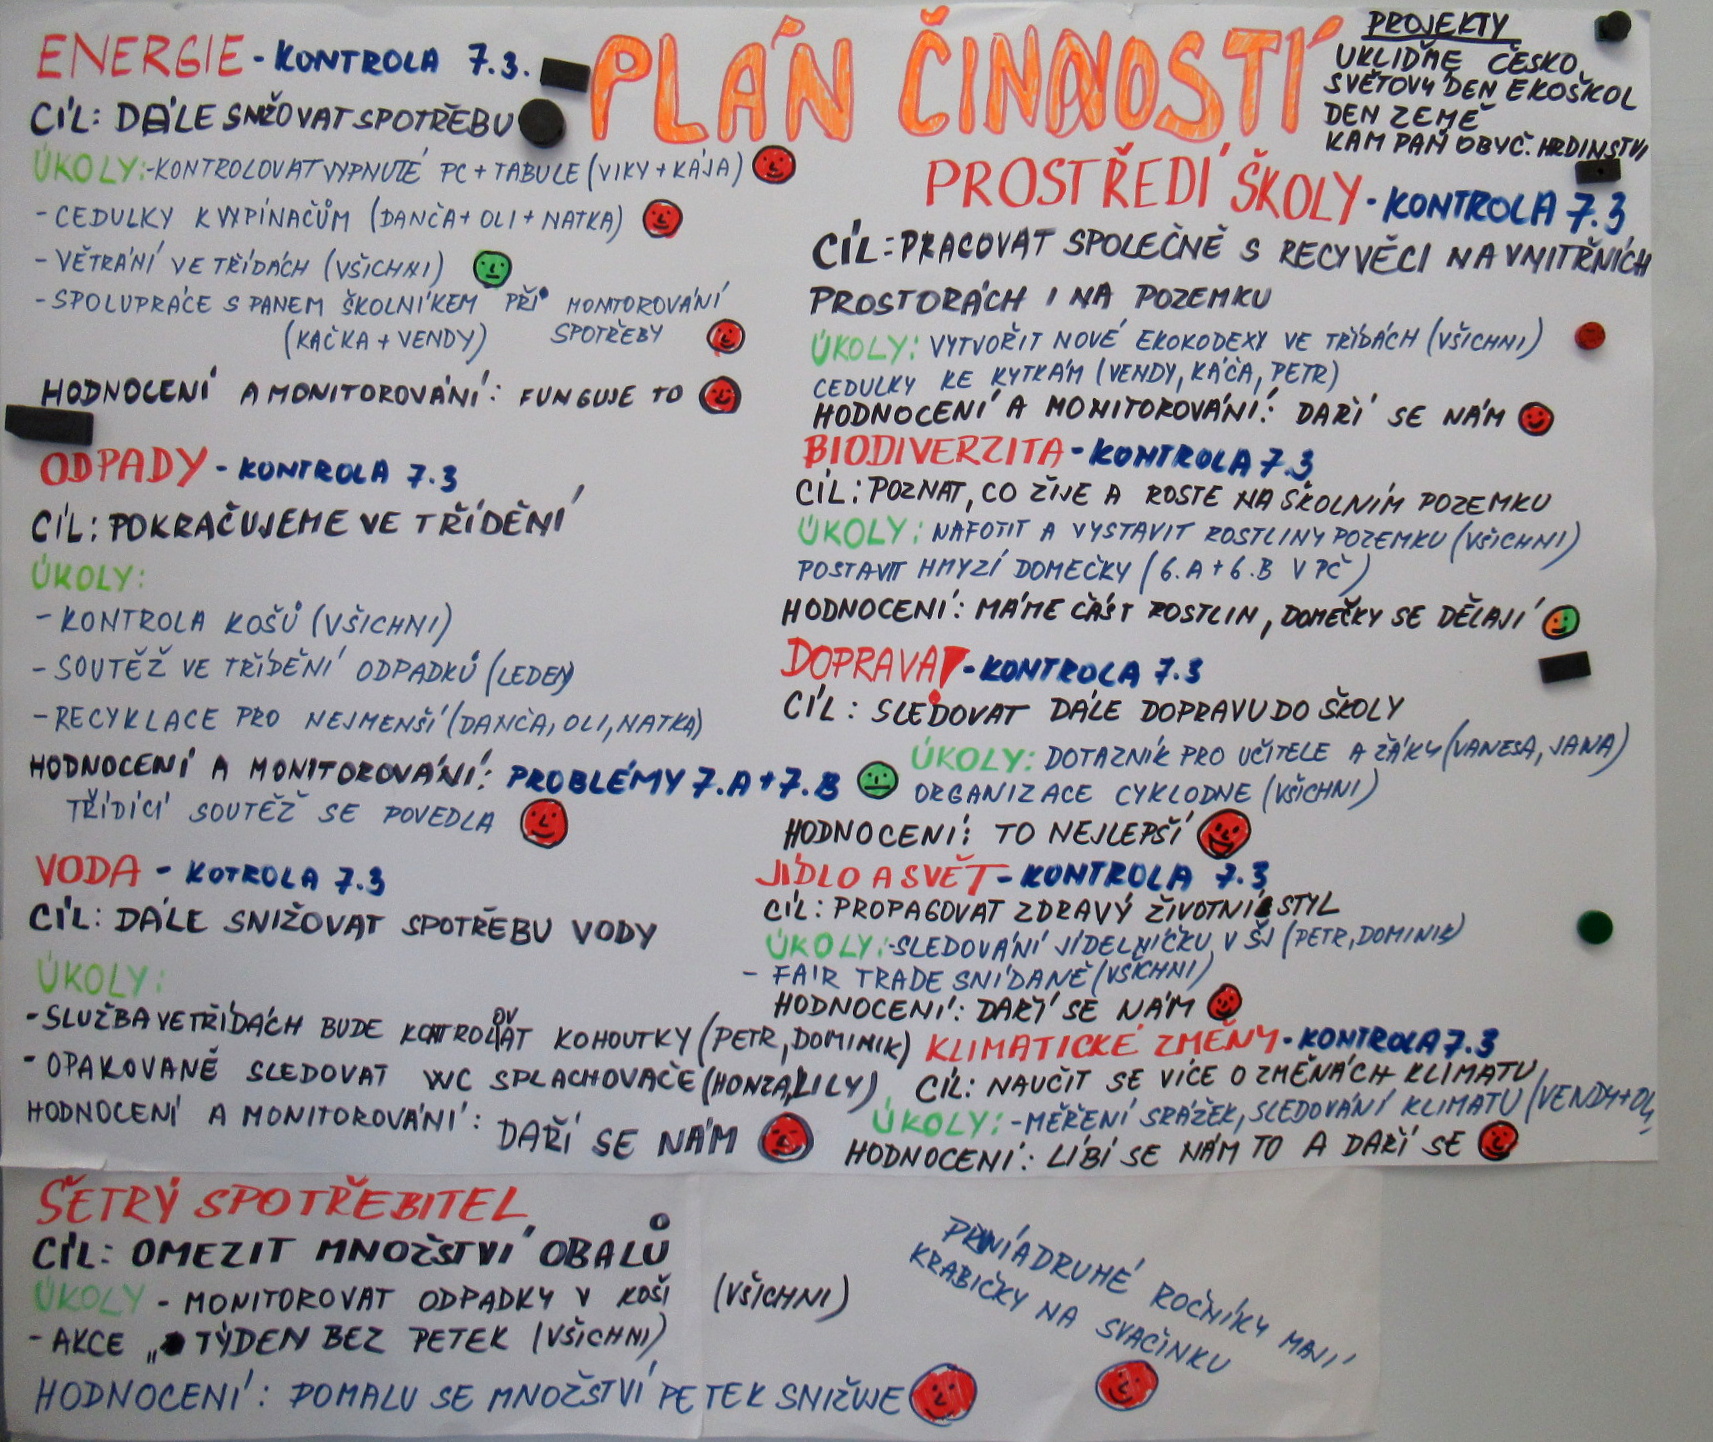 PLÁN ČINNOSTÍ
PROJEKTY
UKLIĎME ČESKO
SVĚTOVÝ DEN EKOŠKOL
DEN ZEMĚ
KAMPAŇ OBYČ. HRDINSTVÍ
ENERGIE - KONTROLA 7.3.
CÍL: DÁLE SNIŽOVAT SPOTŘEBU
ÚKOLY: - KONTROLOVAT VYPNUTÉ PC + TABULE (VIKY + KÁJA)
- CEDULKY K VYPÍNAČŮM (DANČA + OLI + NATKA)
- VĚTRÁNÍ VE TŘÍDÁCH (VŠICHNI)
- SPOLUPRÁCE S PANEM ŠKOLNÍKEM PŘI MONITOROVÁNÍ
(KAČKA + VENDY) SPOTŘEBY
HODNOCENÍ A MONITOROVÁNÍ: FUNGUJE TO
ODPADY - KONTROLA 7.3
CÍL: POKRAČUJEME VE TŘÍDĚNÍ
ÚKOLY:
- KONTROLA KOŠŮ (VŠICHNI)
- SOUTĚŽ VE TŘÍDĚNÍ ODPADKŮ (LEDEN)
- RECYKLACE PRO NEJMENŠÍ (DANČA, OLI, NATKA)
HODNOCENÍ A MONITOROVÁNÍ: PROBLÉMY 7.A + 7.B
TŘÍDÍCÍ SOUTĚŽ SE POVEDLA
VODA - KOTROLA 7.3
CÍL: DÁLE SNIŽOVAT SPOTŘEBU VODY
ÚKOLY:
- SLUŽBA VE TŘÍDÁCH BUDE KONTROLOVAT KOHOUTKY (PETR, DOMINIK)
- OPAKOVANĚ SLEDOVAT WC SPLACHOVAČE (HONZA, LILY)
HODNOCENÍ A MONITOROVÁNÍ: DAŘÍ SE NÁM
PROSTŘEDÍ ŠKOLY - KONTROLA 7.3
CÍL: PRACOVAT SPOLEČNĚ S RECYVĚCI NA VNITŘNÍCH
PROSTORÁCH I NA POZEMKU
ÚKOLY: VYTVOŘIT NOVÉ EKOKODEXY VE TŘÍDÁCH (VŠICHNI)
CEDULKY KE KYTKÁM (VENDY, KÁČA, PETR)
HODNOCENÍ A MONITOROVÁNÍ: DAŘÍ SE NÁM
BIODIVERZITA - KONTROLA 7.3
CÍL: POZNAT, CO ŽIJE A ROSTE NA ŠKOLNÍM POZEMKU
ÚKOLY: NAFOTIT A VYSTAVIT ROSTLINY POZEMKU (VŠICHNI)
POSTAVIT HMYZÍ DOMEČKY (6.A + 6.B V PČ)
HODNOCENÍ: MÁME ČÁST ROSTLIN, DOMEČKY SE DĚLAJÍ
DOPRAVA - KONTROLA 7.3
CÍL: SLEDOVAT DÁLE DOPRAVU DO ŠKOLY
ÚKOLY: DOTAZNÍK PRO UČITELE A ŽÁKY (VANESA, JANA)
ORGANIZACE CYKLODNE (VŠICHNI)
HODNOCENÍ: TO NEJLEPŠÍ
JÍDLO A SVĚT - KONTROLA 7.3
CÍL: PROPAGOVAT ZDRAVÝ ŽIVOTNÍ STYL
ÚKOLY: - SLEDOVÁNÍ JÍDELNÍČKU V ŠJ (PETR, DOMINIK)
- FAIR TRADE SNÍDANĚ (VŠICHNI)
HODNOCENÍ: DAŘÍ SE NÁM
KLIMATICKÉ ZMĚNY - KONTROLA 7.3
CÍL: NAUČIT SE VÍCE O ZMĚNÁCH KLIMATU
ÚKOLY: - MĚŘENÍ SRÁŽEK, SLEDOVÁNÍ KLIMATU (VENDY + OLI
HODNOCENÍ: LÍBÍ SE NÁM TO A DAŘÍ SE
ŠETRÝ SPOTŘEBITEL
CÍL: OMEZIT MNOŽSTVÍ OBALŮ
ÚKOLY - MONITOROVAT ODPADKY V KOŠI (VŠICHNI)
- AKCE „ TÝDEN BEZ PETEK (VŠICHNI)
HODNOCENÍ: POMALU SE MNOŽSTVÍ PETEK SNIŽUJE
PRVNÍ A DRUHÉ ROČNÍKY MAJÍ
KRABIČKY NA SVAČINKU